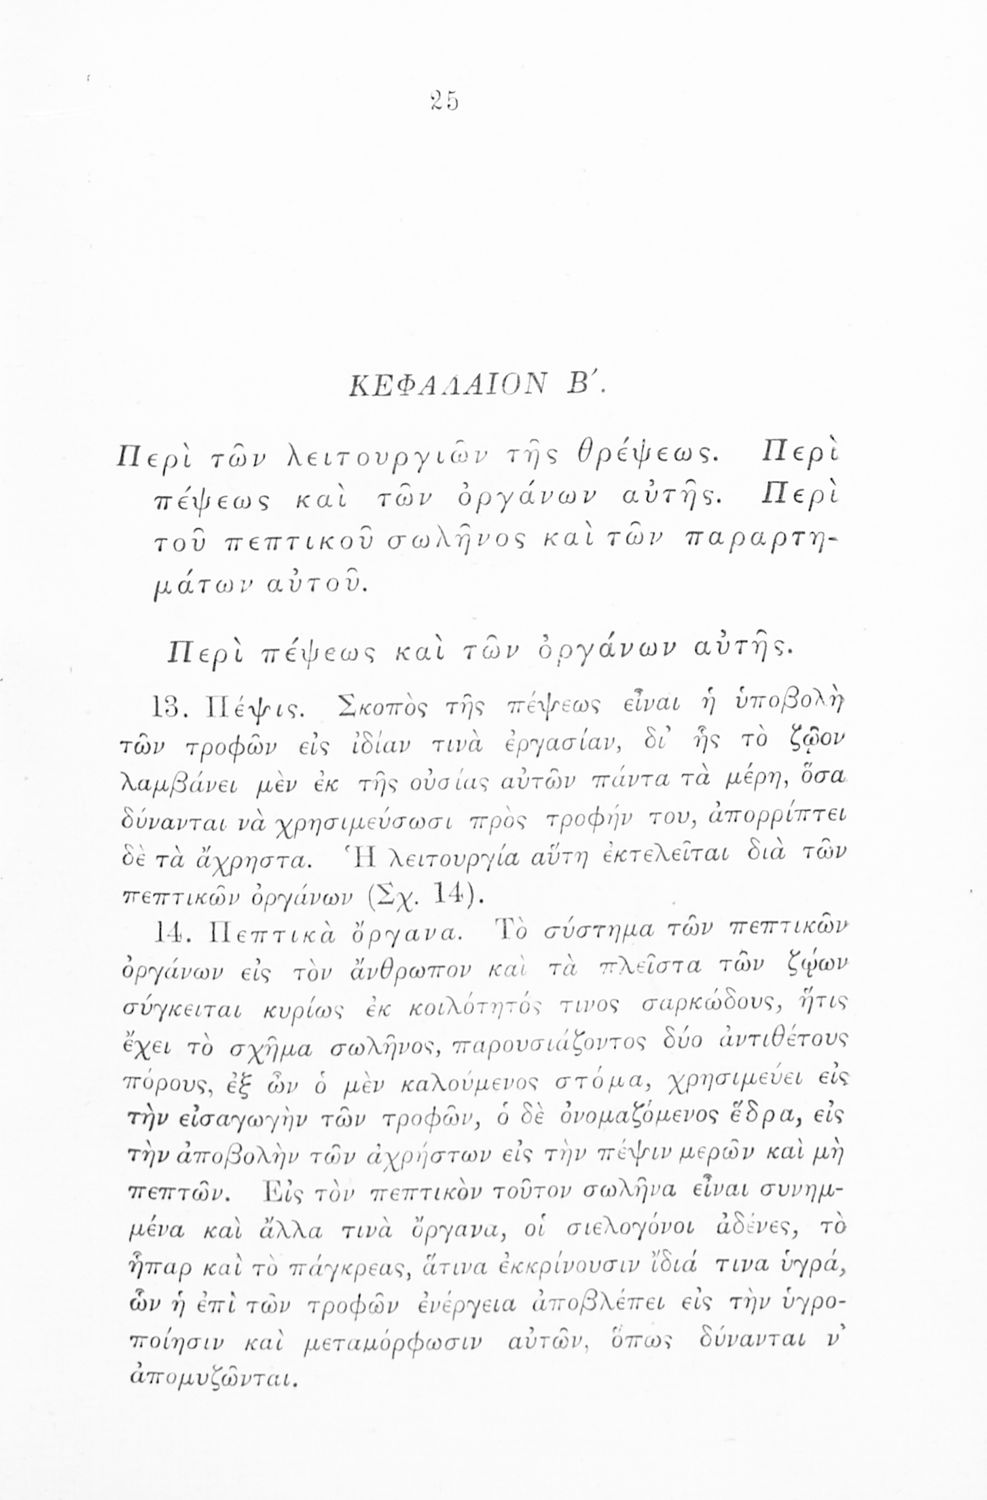 25
ΚΕΦΑΛΑΙΟΝ Β΄.
Περὶ τῶν λειτουργιῶν τῆς θρέψεως. Περὶ
πέψεως καὶ τῶν ὀργάνων αὐτῆς. Περὶ
τοῦ πεπτικοῦ σωλῆνος καὶ τῶν παραρτη-
μάτων αὐτοῦ.
Περὶ πέψεως καὶ τῶν ὀργάνων αὐτῆς.
13. Πέψις. Σκοπὸς τῆς πέψεως εἶναι ἡ ὑποβολὴ
τῶν τροφῶν εἰς ἰδίαν τινὰ ἐργασίαν, δι᾽ ἧς τὸ ζῷον
λαμβάνει μὲν ἐκ τῆς οὐσίας αὐτῶν πάντα τὰ μέρη, ὅσα
δύνανται νὰ χρησιμεύσωσι πρὸς τροφήν του, ἀπορρίπτει
δὲ τὰ ἄχρηστα. Ἡ λειτουργία αὕτη ἐκτελεῖται διὰ τῶν
πεπτικῶν ὀργάνων (Σχ. 14).
14. Πεπτικὰ ὄργανα. Τὸ σύστημα τῶν πεπτικῶν
ὀργάνων εἰς τὸν ἄνθρωπον καὶ τὰ πλεῖστα τῶν ζῴων
σύγκειται κυρίως ἐκ κοιλότητός τινος σαρκώδους, ἥτις
ἔχει τὸ σχῆμα σωλῆνος, παρουσιάζοντος δύο ἀντιθέτους
πόρους, ἐξ ὧν ὁ μὲν καλούμενος στόμα, χρησιμεύει εἰς
τὴν εἰσαγωγὴν τῶν τροφῶν, ὁ δὲ ὀνομαζόμενος ἕδρα, εἰς
τὴν ἀποβολὴν τῶν ἀχρήστων εἰς τὴν πέψιν μερῶν καὶ μὴ
πεπτῶν. Εἰς τὸν πεπτικὸν τοῦτον σωλῆνα εἶναι συνημ-
μένα καὶ ἄλλα τινὰ ὄργανα, οἱ σιελογόνοι ἀδένες, τὸ
ἧπαρ καὶ τὸ πάγκρεας, ἅτινα ἐκκρίνουσιν ἴδιά τινα ὑγρά,
ὧν ἡ ἐπὶ τῶν τροφῶν ἐνέργεια ἀποβλέπει εἰς τὴν ὑγρο-
ποίησιν καὶ μεταμόρφωσιν αὐτῶν, ὅπως δύνανται ν᾽
ἀπομυζῶνται.